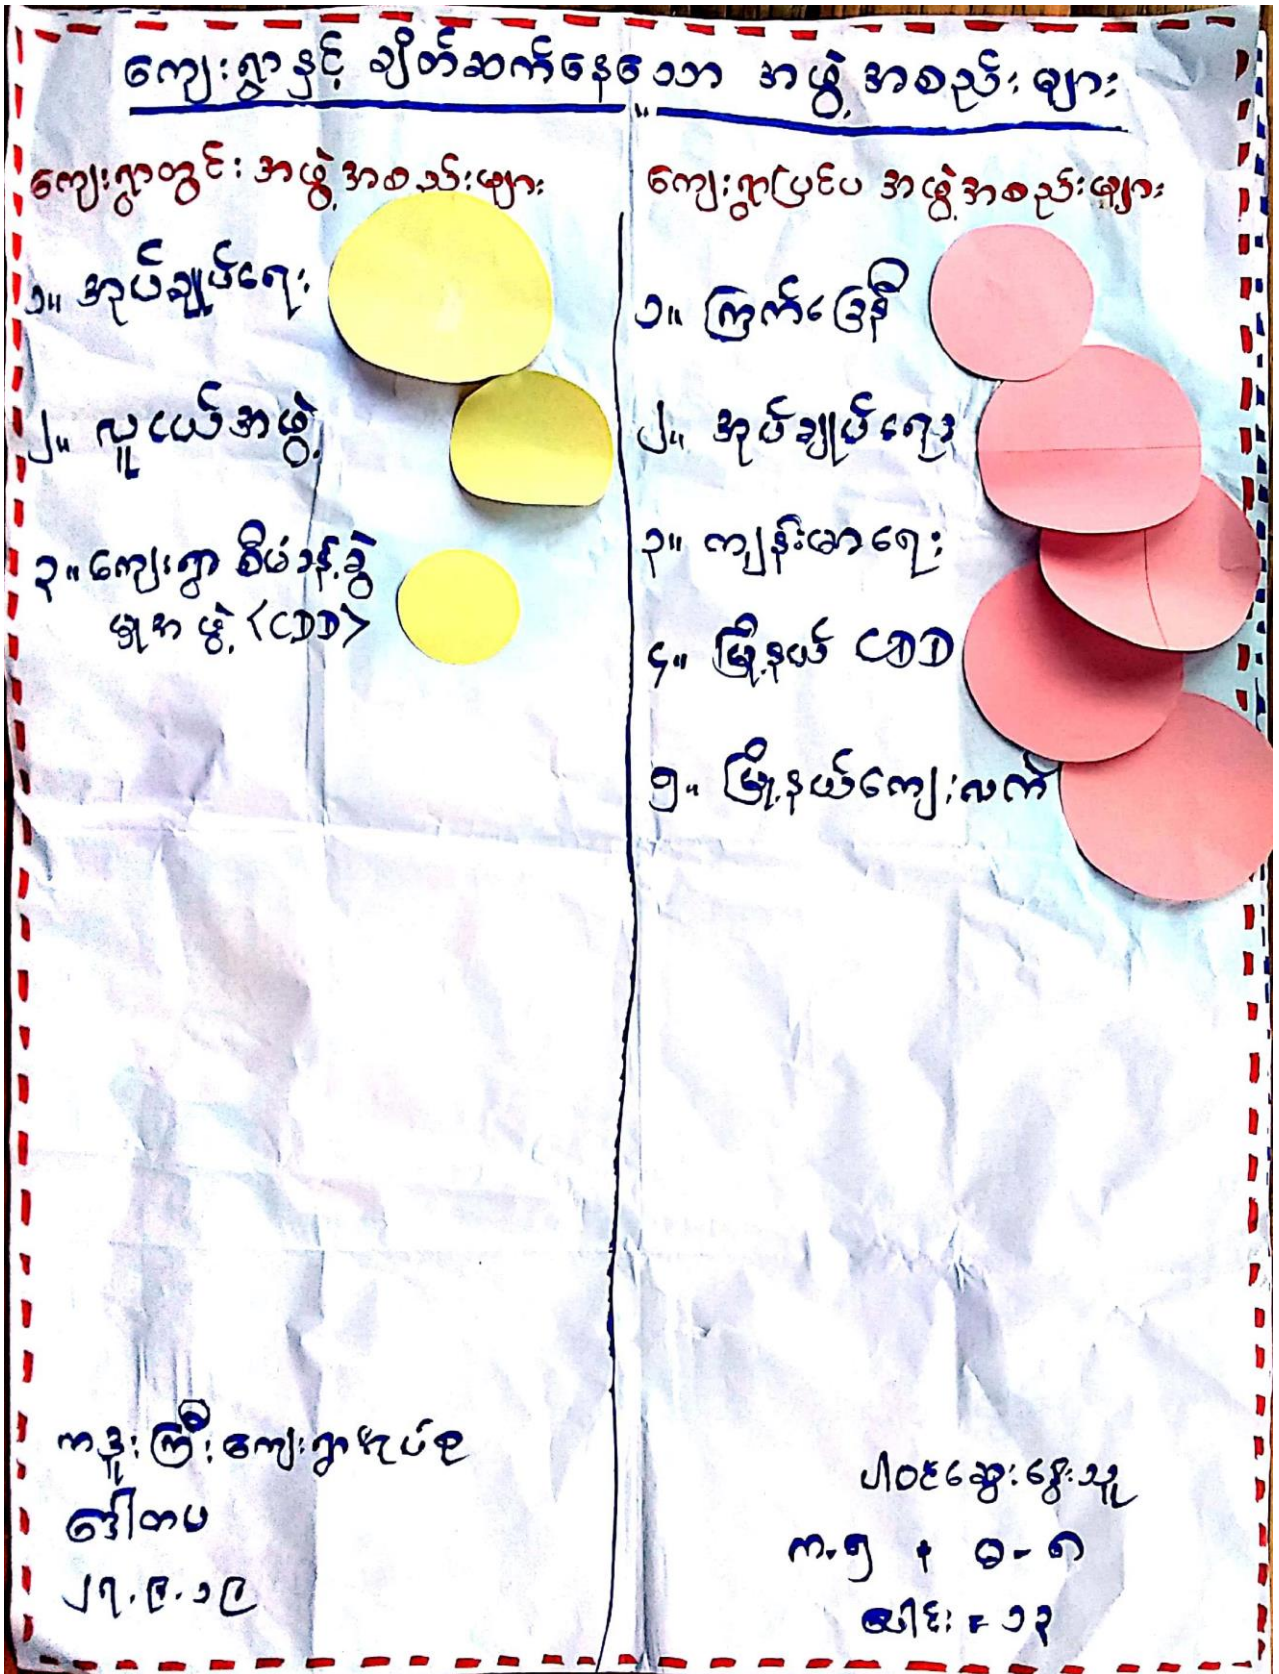 ကျေးရွာနှင့် ချိတ်ဆက်နေသော အဖွဲ့အစည်းများ
ကျေးရွာတွင်း အဖွဲ့အစည်းများ
၁။ အုပ်ချုပ်ရေး
၂။ လူငယ်အဖွဲ့
၃။ ကျေးရွာ စီမံခန့်ခွဲ
မှုအဖွဲ့ <CDD>
ကျေးရွာပြင်ပ အဖွဲ့အစည်းများ
၁။ ကြက်ခြေနီ
၂။ အုပ်ချုပ်ရေး
၃။ ကျန်းမာရေး
၄။ မြို့နယ် CDD
၅။ မြို့နယ်ကျေးလက်
ကဒူးကြီးကျေးရွာအုပ်စု
ဒေါတမ
၂၇.၉.၁၉
ပါဝင်ဆွေးနွေးသူ
က-၅ + မ-၈
ပေါင်း = ၁၃